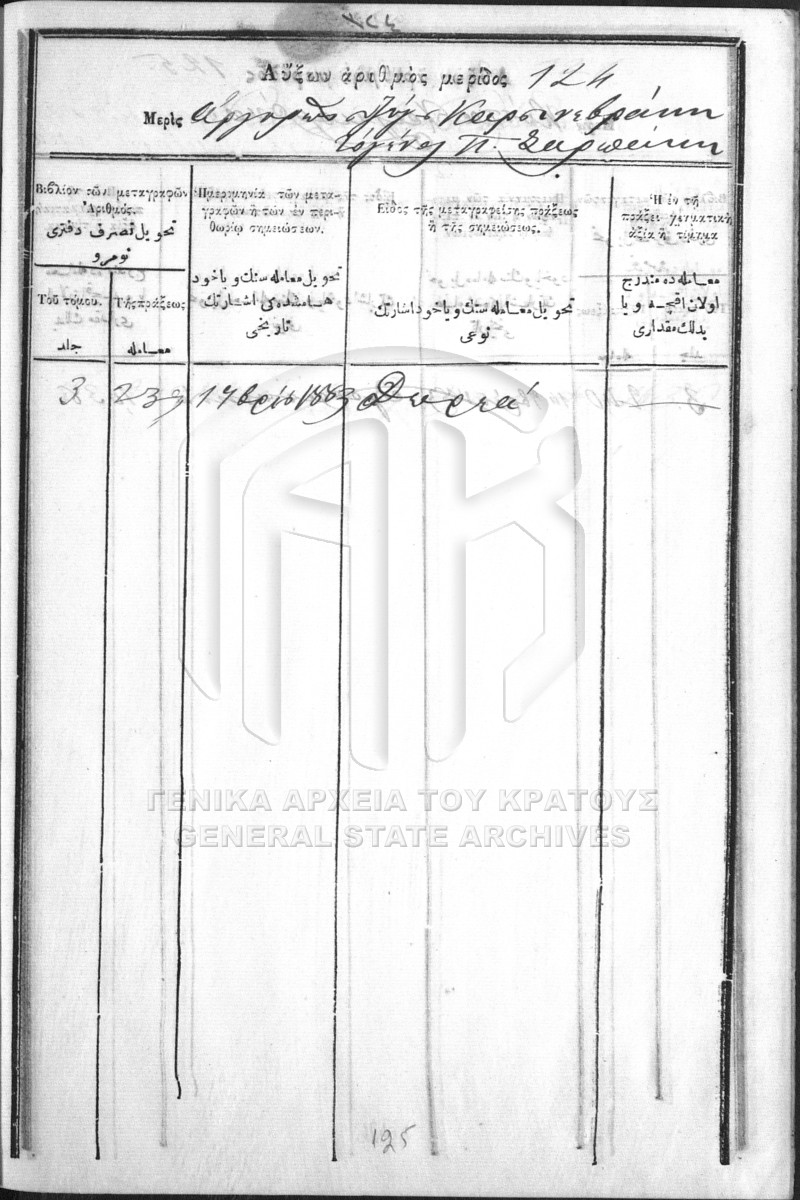 Αὔξων ἀριθμὸς μερίδος 124
Μερὶς
Βιβλίον τῶν μεταγραφῶν
Ἀριθμός.
تحويل تصرف دفترى
نومرو
Τοῦ τόμου.
جلد
Τῆς πράξεως
معامله
Ἡμερομηνία τῶν μετα-
γραφῶν ἢ τῶν ἐν περι-
θωρίῳ σημειώσεων.
تحويل معامله سنك و ياخود
هامشده كى اشارتك
تاريخى
Εἶδος τῆς μεταγραφείσης πράξεως
ἢ τῆς σημειώσεως.
تحويل معامله سنك و ياخود اشارتك
نوعى
Ἡ ἐν τῇ
πράξει χρηματικὴ
ἀξία ἢ τίμημα
معامله ده مندرج
اولان اقچه و يا
بدلك مقدارى
3 239 17 8βρίου 1883 Δωρεά
ΓΕΝΙΚΑ ΑΡΧΕΙΑ ΤΟΥ ΚΡΑΤΟΥΣ
GENERAL STATE ARCHIVES
125